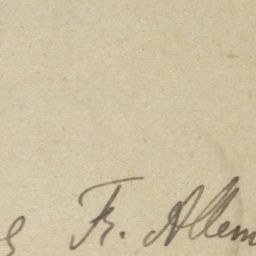 Fr. Allem